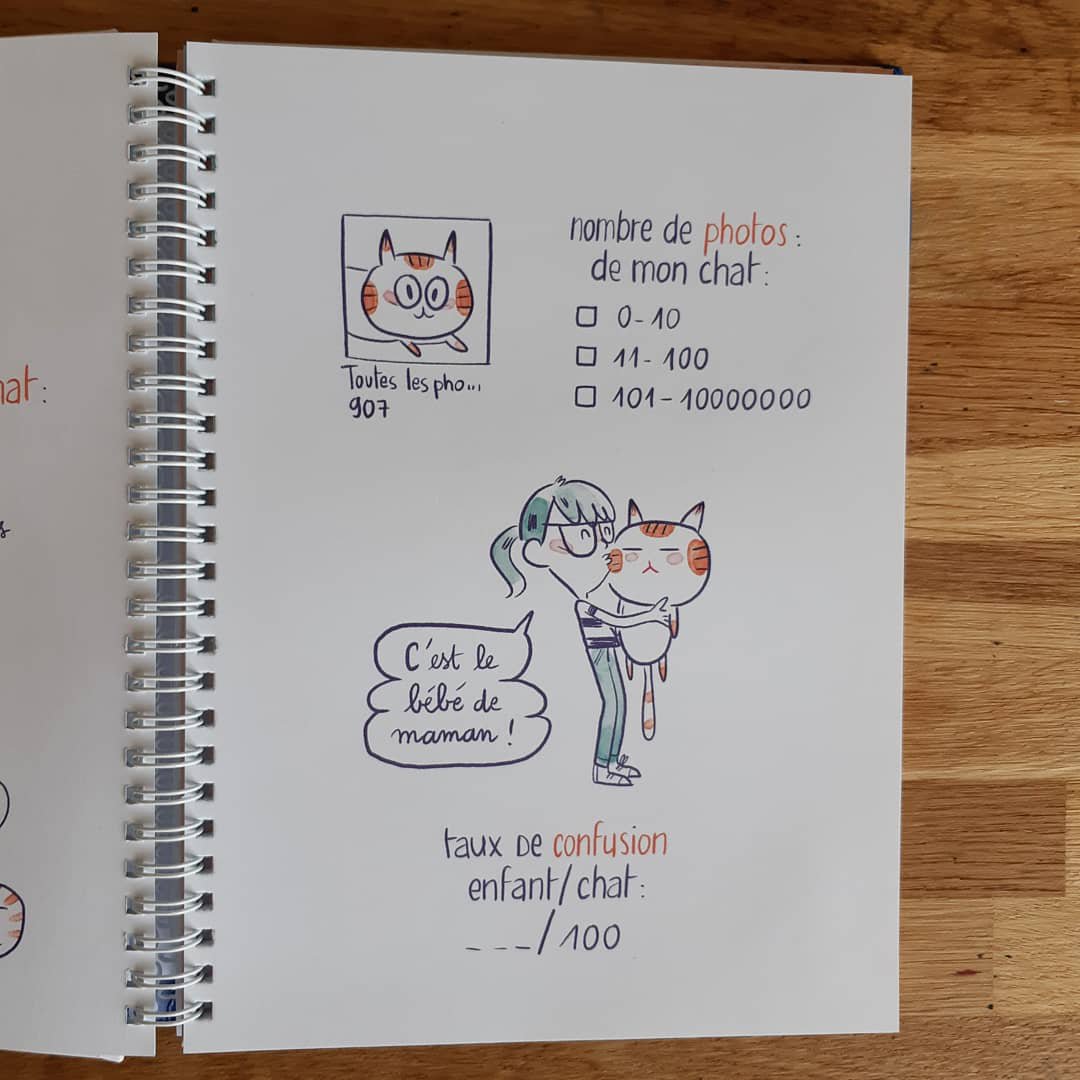 nombre de photos :
de mon chat :
0-10
11-100
101-10000000
Toutes les pho...
907
C'est le
bébé de
maman !
taux de confusion
enfant/chat :
_ _ _/100